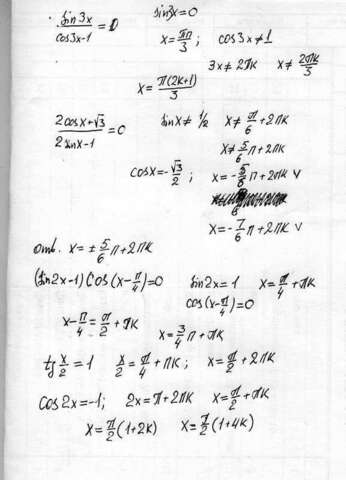 sin3x/(cos3x-1) = 0   sin3x=0
x = πn/3 ;   cos3x≠1
3x≠2πk   x≠ 2πk/3
x = π(2k+1)/3
(2cosx+√3)/(2sinx-1) = 0   sinx≠ 1/2   x≠ π/6 +2πk
x≠ 5/6 π+2πk
cosx=-√3/2 ;   x=-5/6 π+2πk v
x=-7/6 π+2πk v
отв. x = ± 5/6 π+2πk
(sin2x-1)cos(x-π/4)=0   sin2x=1   x= π/4 +πk
cos(x-π/4)=0
x-π/4 = π/2 +πk   x= 3/4 π+πk
tg x/2 = 1   x/2 = π/4 +πk ;   x= π/2 + 2πk
cos2x=-1;   2x=π+2πk   x= π/2 +πk
x= π/2 (1+2k)   x= π/2 (1+4k)